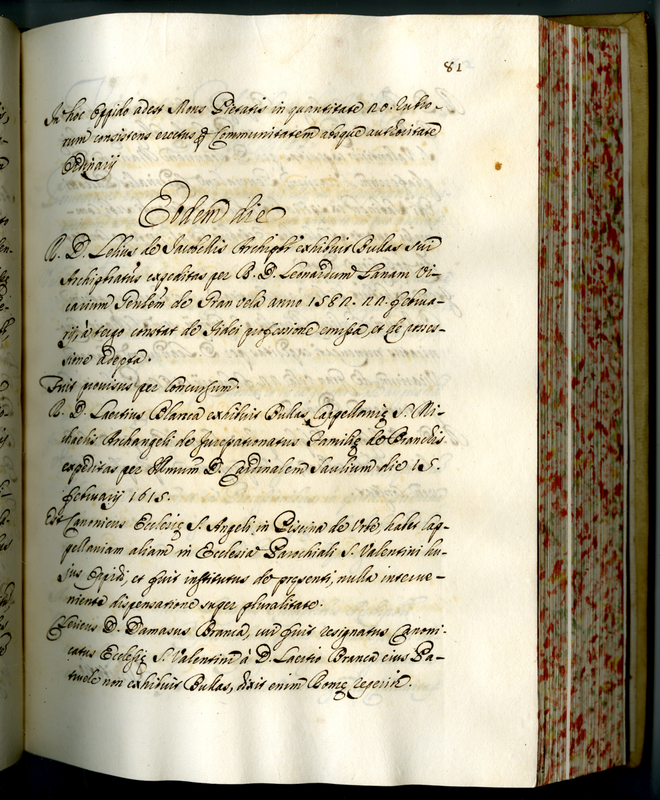 81
In hoc Oppido adest Mons Pietatis in quantitate no. rubro-
rum consistens erectus ꝑ Communitatem absque authoritate
Ordinarij
Eodem die
R. D. Lelius de Iacobellis Archipbr̃ exhibuit Bullas sui
Archipbratus expeditas per R. D. Leonardum Vi-
carium Genlem de anno 158 . Februa-
rij, à tergo constat de Fidei professione emissa, et de posses-
sione adepta.
Fuit provisus per Concursum.
R. D. Laertius Branca exhibuit Bullas Cappellanię S. Mi-
chaelis Archangeli de Iurepatronatus Familię de Branchis
expeditas per Illmum D. Cardinalem Saulium die 15.
Februarij 1615.
Est Canonicus Ecclesię S. Angeli in Piscina de Urbe habet Cap-
pellaniam aliam in Ecclesia Parochiali S. Valentini hu-
jus Oppidi, et fuit institutus de presenti, nulla interve-
niente dispensatione super pluralitate.
Clericus D. Damasus Branca, cui fuit resignatus Canoni-
catus Ecclesię S. Valentini à D. Laertio Branca eius Pa-
truele non exhibuit Bullas, dixit enim Romę reperiri.